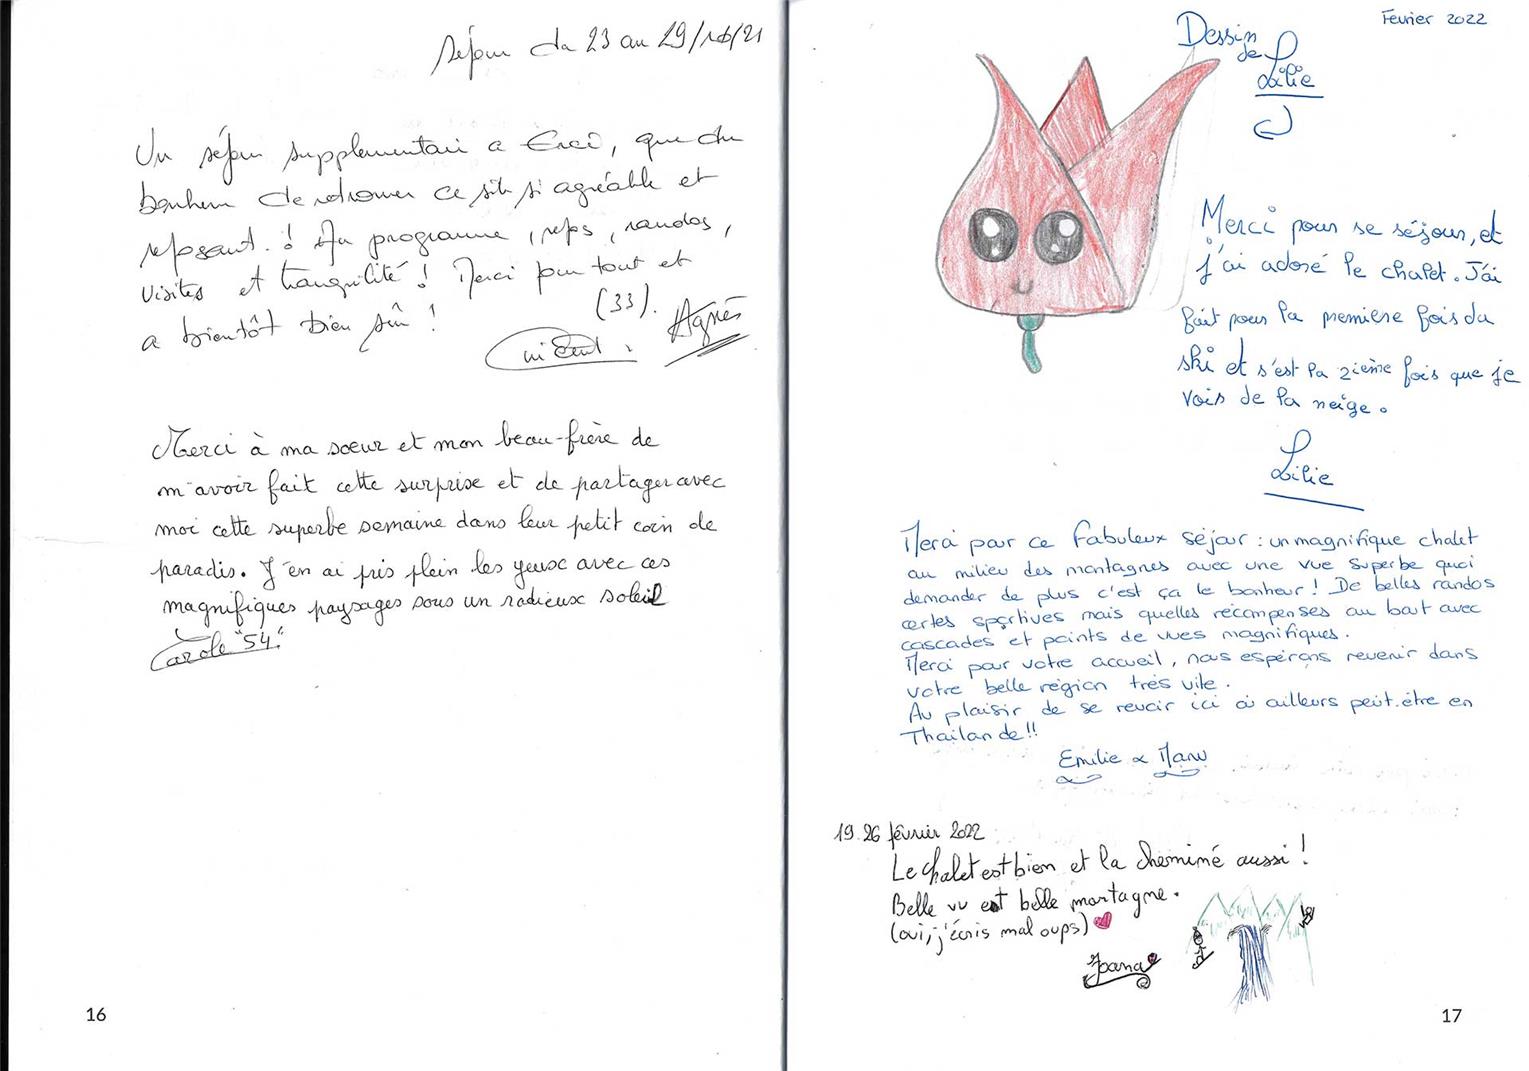 séjour du 23 au 29/10/21
Un séjour supplementaire a, que du
bonheur de retrouver ce site si agréable et
reposant.! Au programme, repos, randos,
visites et tranquilité! Merci pour tout et
a bientôt bien sûr! (33).
Vincent. Agnès
Merci à ma sœur et mon beau-frère de
m'avoir fait cette surprise et de partager avec
moi cette superbe semaine dans leur petit coin de
paradis. J'en ai pris plein les yeux avec ces
magnifiques paysages sous un radieux soleil
Carole "54"
16
Février 2022
Dessin
de
Lilie
Merci pour se séjour, et
j'ai adoré le chalet. J'ai
fait pour la première fois du
ski et s'est la 2ième fois que je
vois de la neige.
Lilie
Merci pour ce fabuleux séjour : un magnifique chalet
au milieu des montagnes avec une vue superbe quoi
demander de plus c'est ça le bonheur! De belles randos
certes sportives mais quelles récompenses au bout avec
cascades et points de vues magnifiques.
Merci pour votre accueil, nous espérons revenir dans
votre belle région très vite.
Au plaisir de se revoir ici où ailleurs peut-être en
Thailande!!
Emilie & Manu
19.26 février 2022
Le chalet est bien et la cheminé aussi!
Belle vu et belle montagne.
(oui, j'écris mal oups)
Joana
17